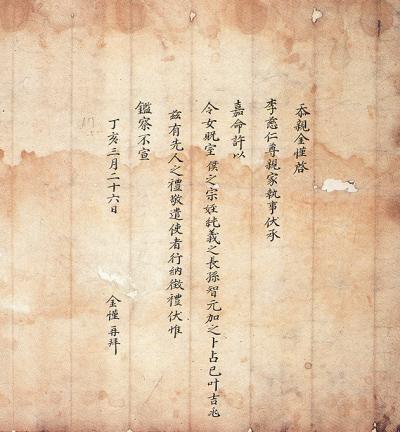 忝親金慬啓
李慈仁尊親家執事伏承
嘉命許以
令女貺室僕之宗姪純義之長孫智元加之卜占已叶吉兆
玆有先人之禮敬遣使者行納徵禮伏惟
鑑察不宣
丁亥三月二十六日 金慬再拜